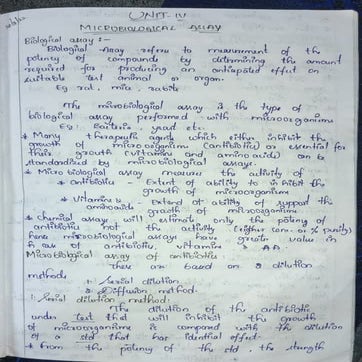 UNIT-IV
MICROBIOLOGICAL ASSAY
Biological assay :-
Biological Assay refers to measurement of the
potency of compounds by determining the amount
required for producing an anticipated effect on
suitable test animal or organ.
Eg rat, mice, rabits
The microbiological assay is the type of
biological assay performed with microorganisms
Eg. bacteria yeast etc.
* Many therapeutic agents which either inhibit the
growth of microorganisms (antibiotics) or essential for
their growth (vitamins and amino acids) can be
standardised by microbiological assays.
* Micro biological assay measure the activity of
* Antibiotics - Extent of ability to inhibit the
growth of microorganism
* Vitamins & - Extend of ability of support the
aminoacids growth of microorganisms
* Chemical assays will estimate only the potency of
antibiotic not the activity (either con. or % purity)
hence microbiological assays have grown value in
of antibiotic, vitamins & A.A.
Microbiological assay of antibiotics
These are based on 2 dilution
methods
1. Serial dilution
2. Diffusion method.
1. Serial dilution method:
The dilution of the antibiotic
under test that will inhibit the growth
of microorganisms is compared with the dilution
of a std that has identical effect.
* From the potency of the std, the strength